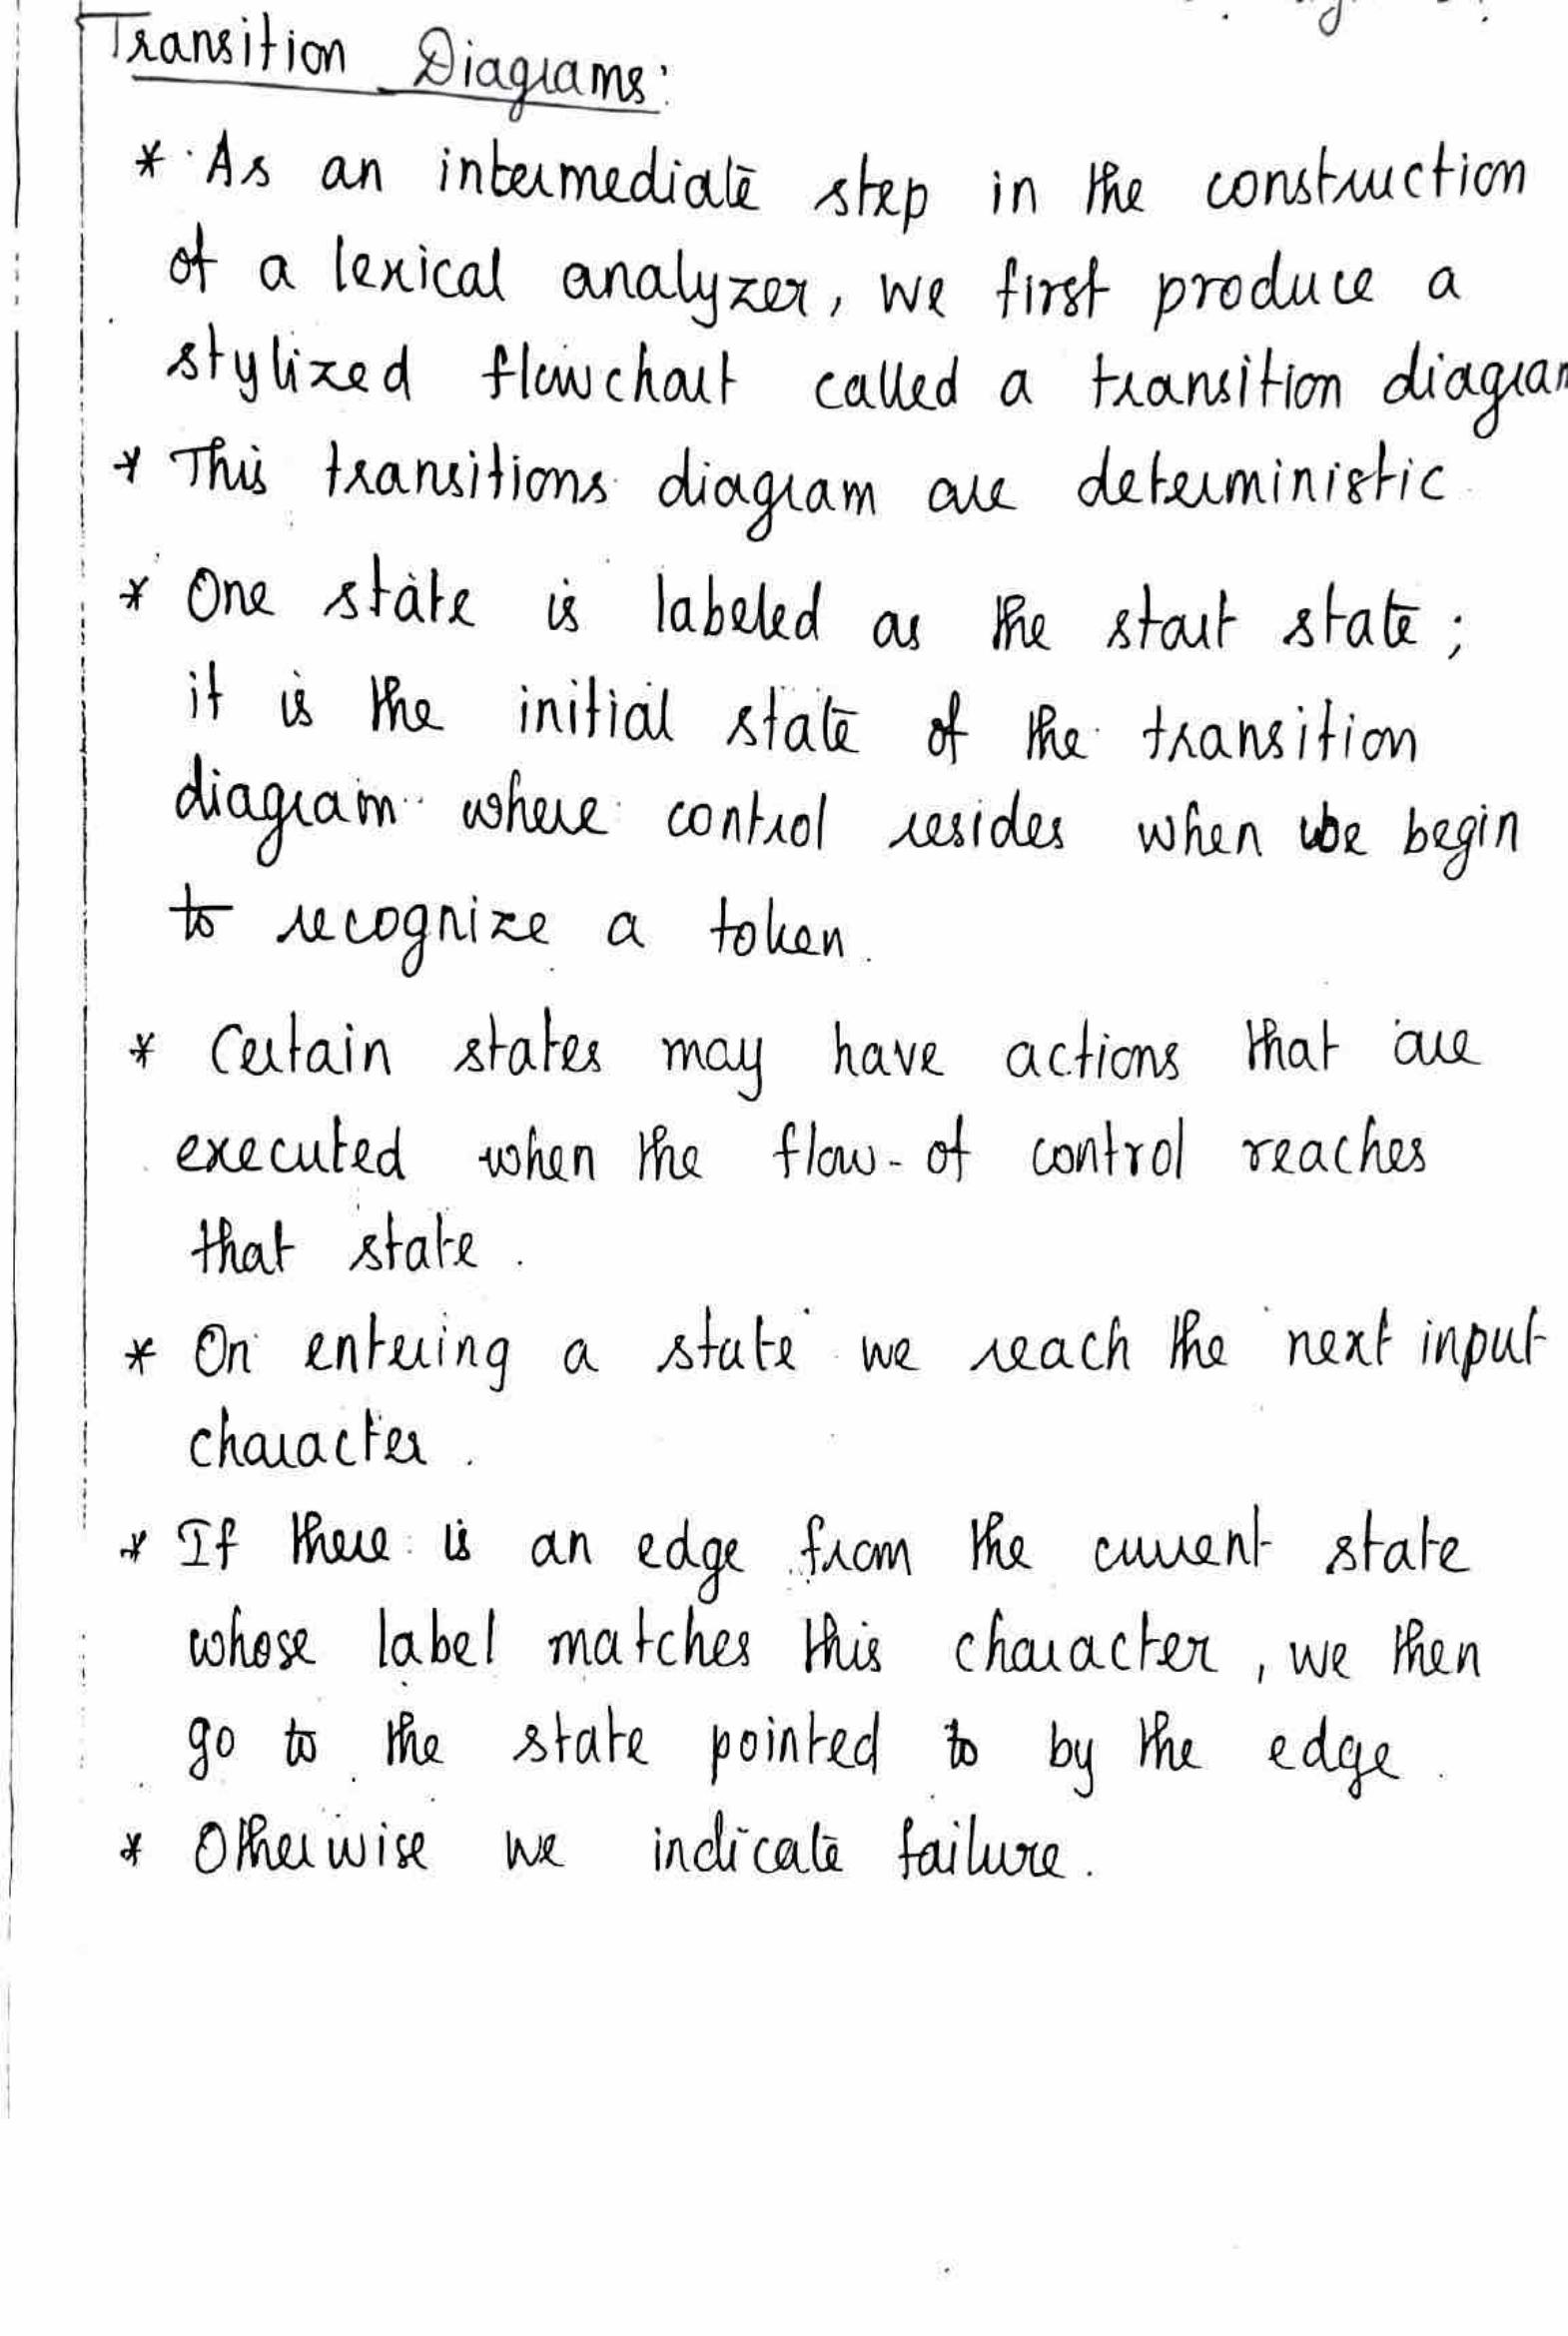 Transition Diagrams:
* As an intermediate step in the construction
of a lexical analyzer, we first produce a
stylized flowchart called a transition diagram
* This transitions diagram are deterministic
* One state is labeled as the start state ;
it is the initial state of the transition
diagram where control resides when we begin
to recognize a token.
* Certain states may have actions that are
executed when the flow-of control reaches
that state.
* On entering a state we reach the next input
character.
* If there is an edge from the current state
whose label matches this character, we then
go to the state pointed to by the edge.
* Otherwise we indicate failure.